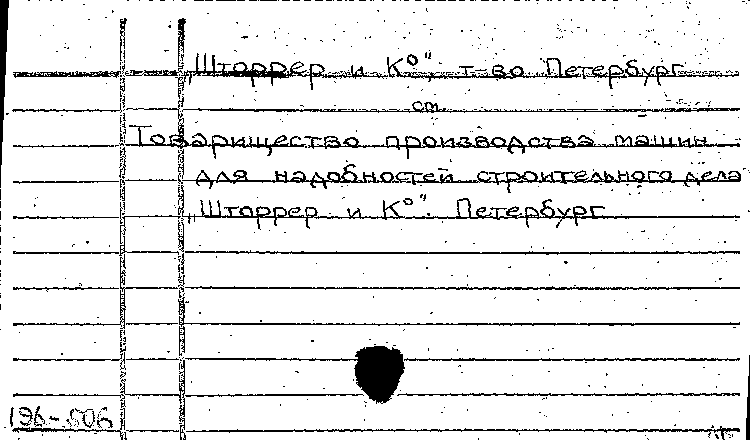 „Шторрер и К⁰", т-во Петербург
см.
Товарищество производства машин
для надобностей строительного дела
„Шторрер и К⁰". Петербург
196-506